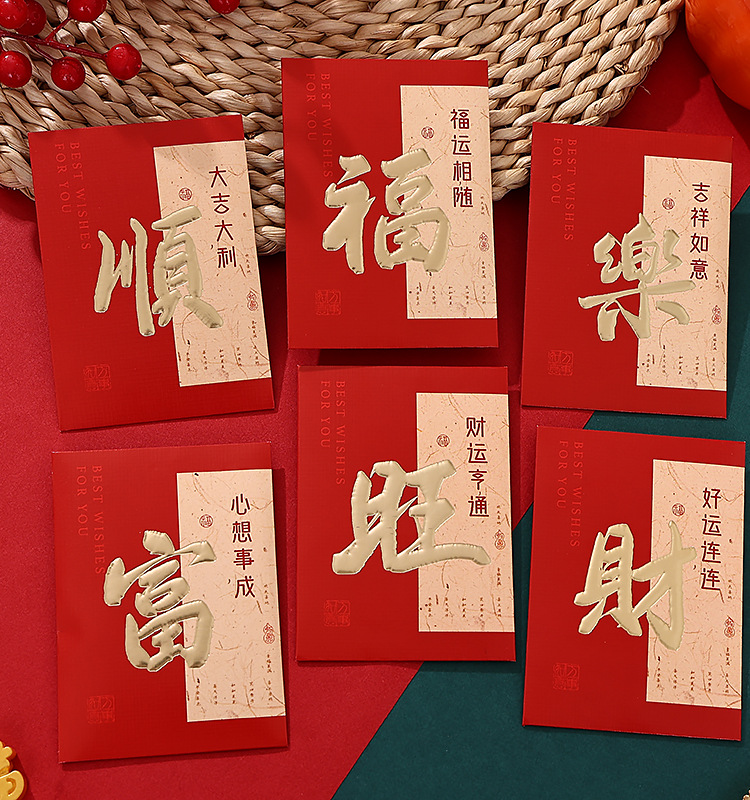 BEST WISHES
FOR YOU
順
大吉大利
BEST WISHES
FOR YOU
福
福运相随
BEST WISHES
FOR YOU
樂
吉祥如意
BEST WISHES
FOR YOU
富
心想事成
BEST WISHES
FOR YOU
旺
财运亨通
BEST WISHES
FOR YOU
財
好运连连